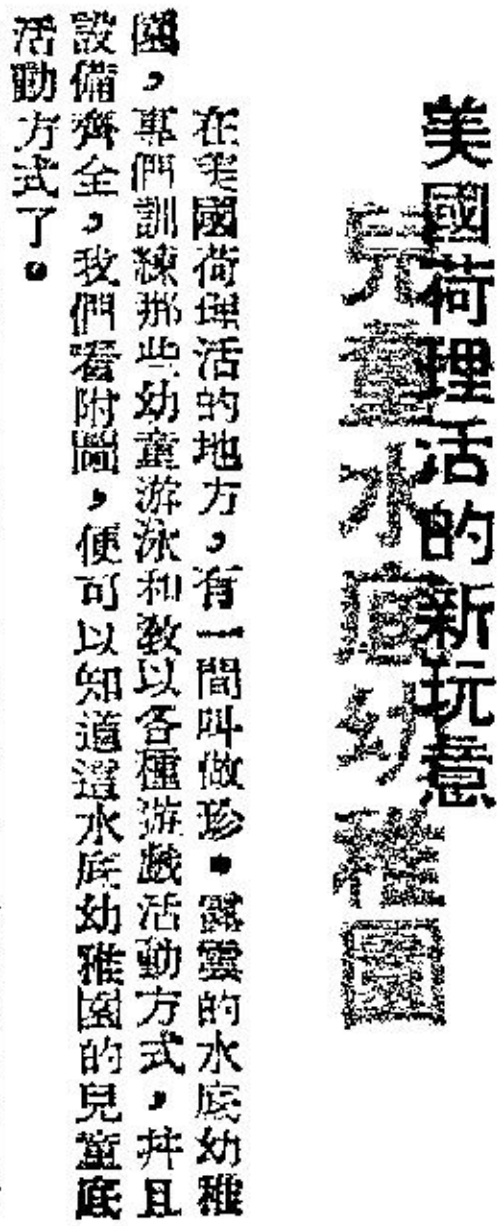 美國荷理活的新玩意
兒童水底幼稚園
在美國荷理活的地方，有一間叫做珍•露雲的水底幼稚
園，專們訓練那些幼童游泳和教以各種游戲活動方式，并且
設備齊全，我們看附圖，便可以知道這水底幼雅園的兒童底
活動方式了。